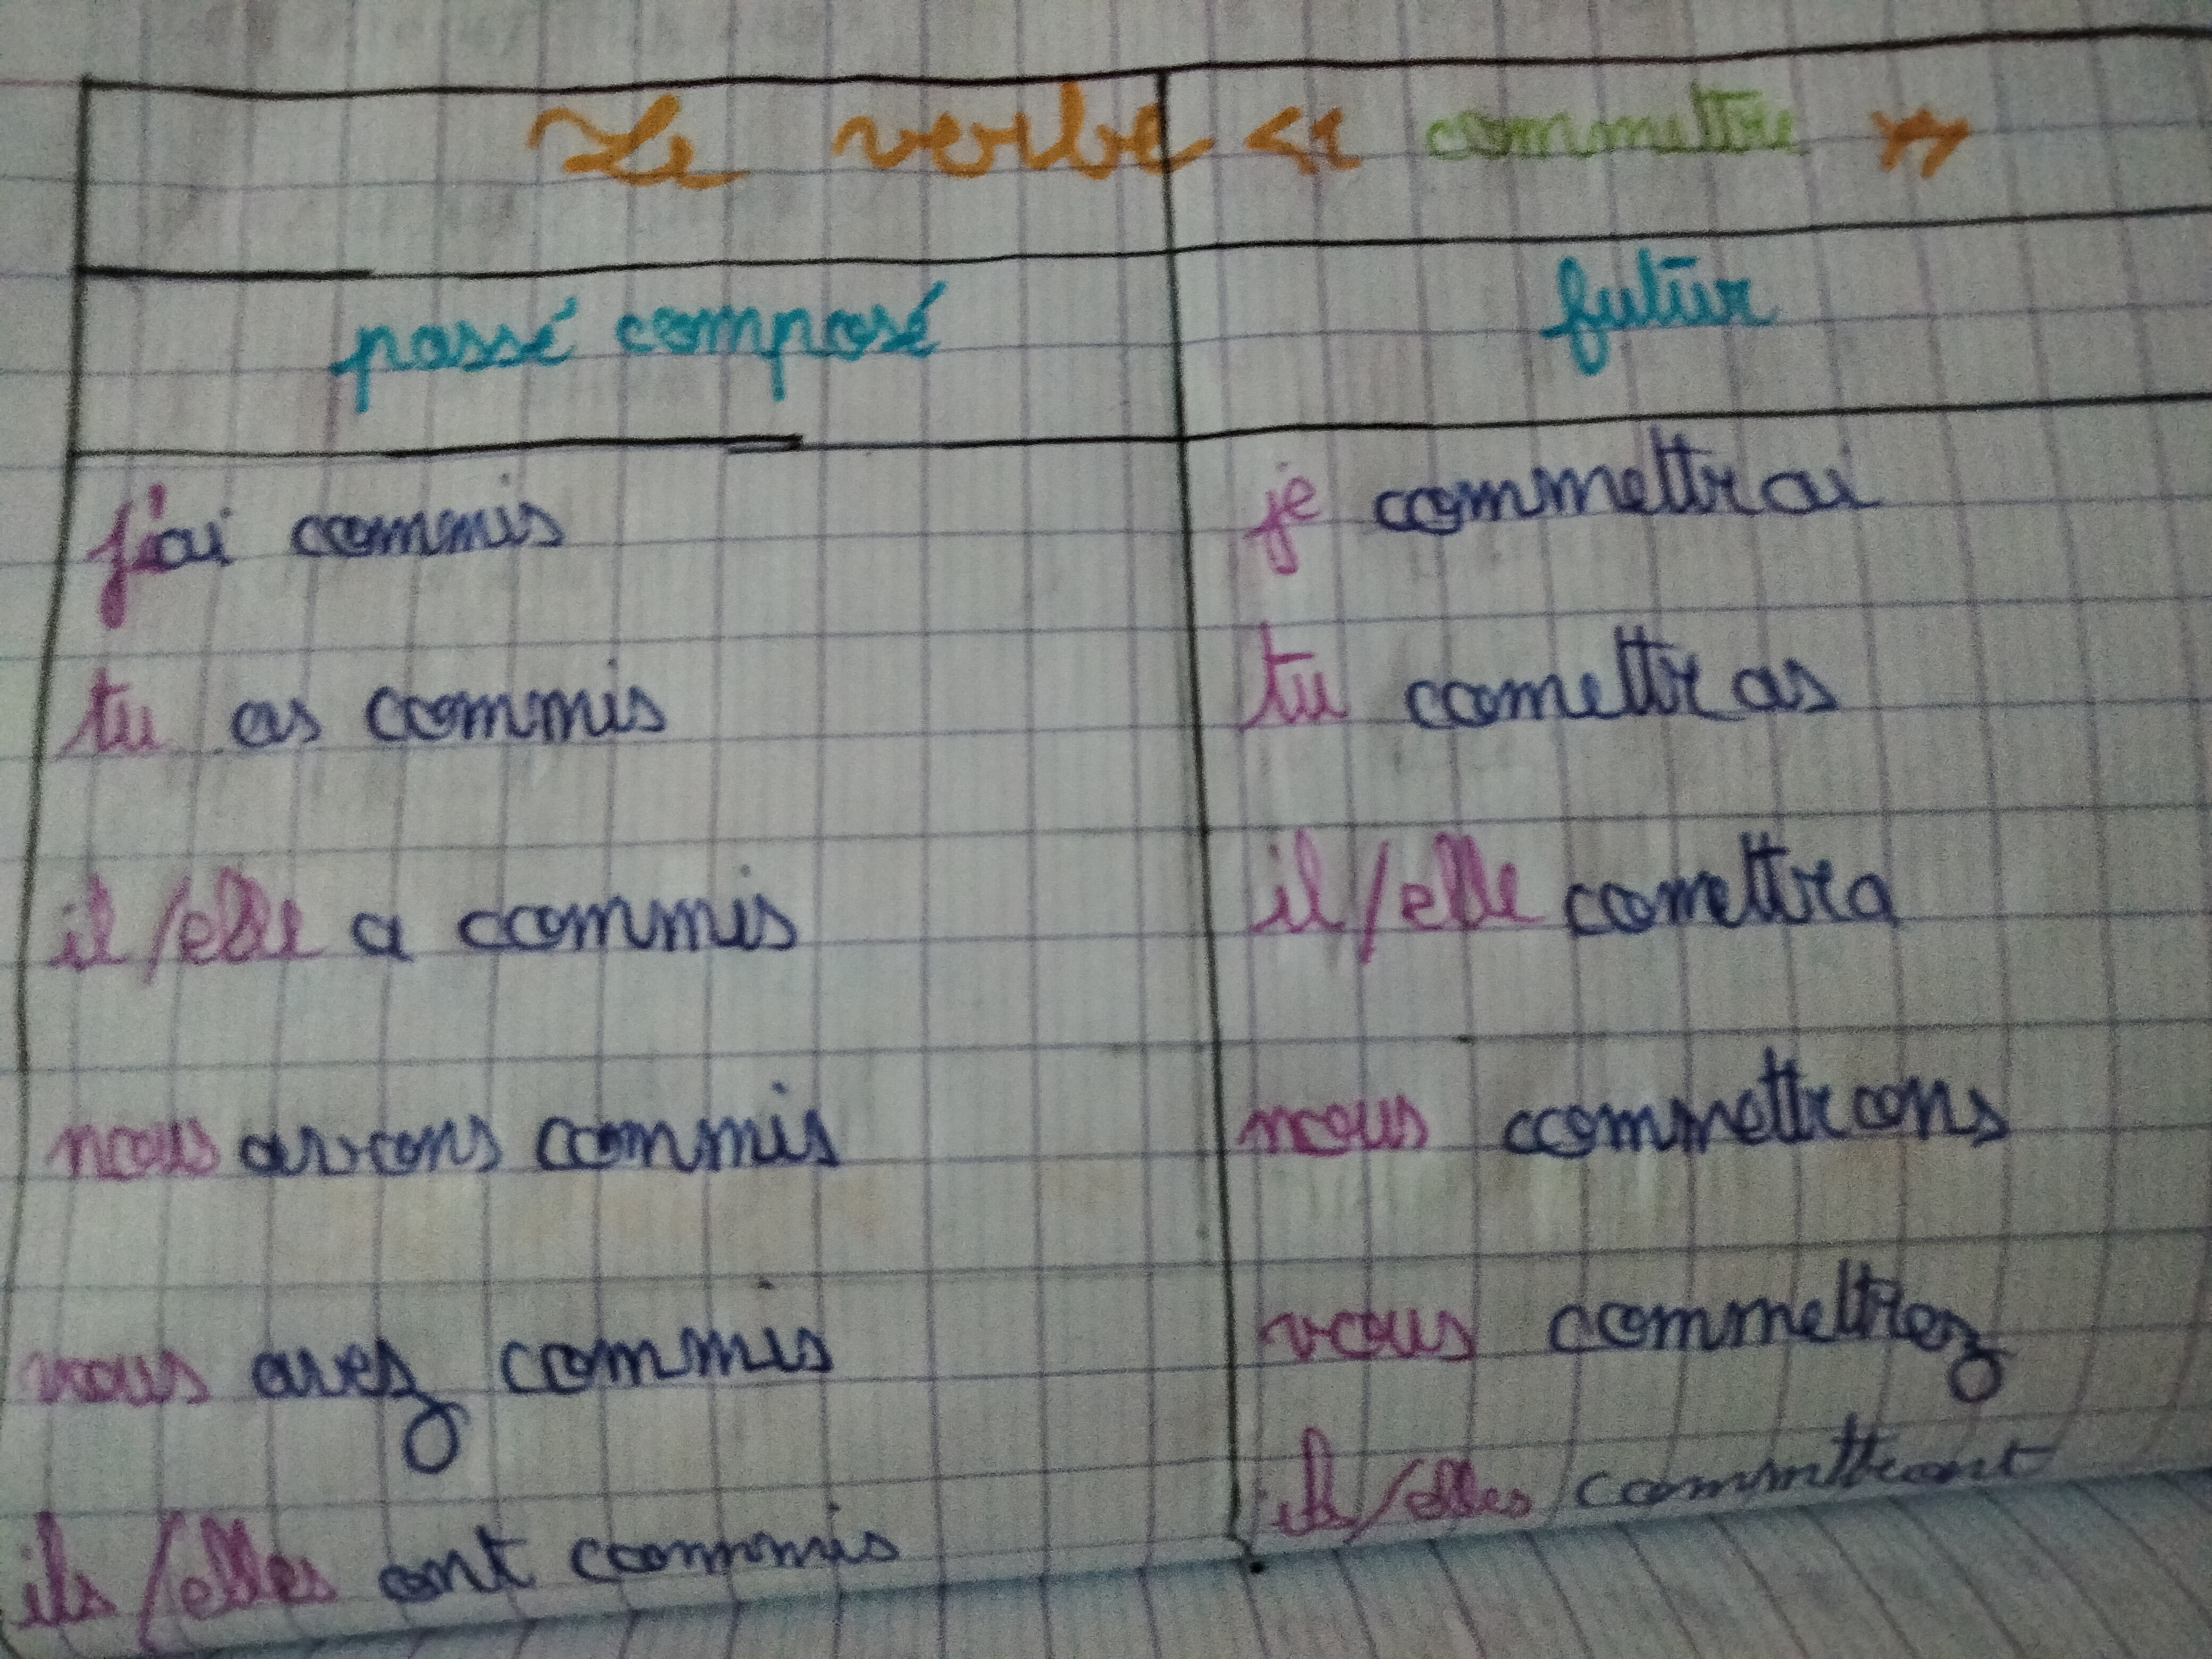 Le verbe << commettre >>
passé composé
futur
j'ai commis
je commettrai
tu as commis
tu comettras
il/elle a commis
il/elle comettra
nous avons commis
nous commettrons
vous avez commis
vous commettrez
ils/elles ont commis
ils/elles commettront